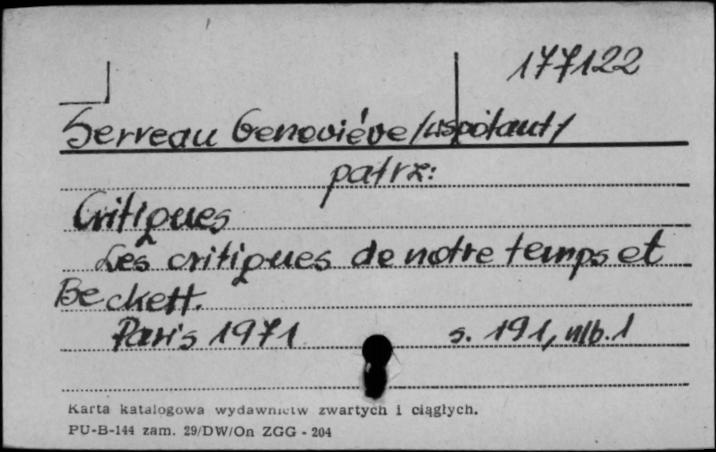 177122
Serreau Genoviéve /współaut/
patrz:
Critiques
Les critiques de notre temps et
Beckett.
Paris 1971 s. 191, nlb. 1
Karta katalogowa wydawnictw zwartych i ciągłych.
PU-B-144 zam. 29/DW/On ZGG - 204